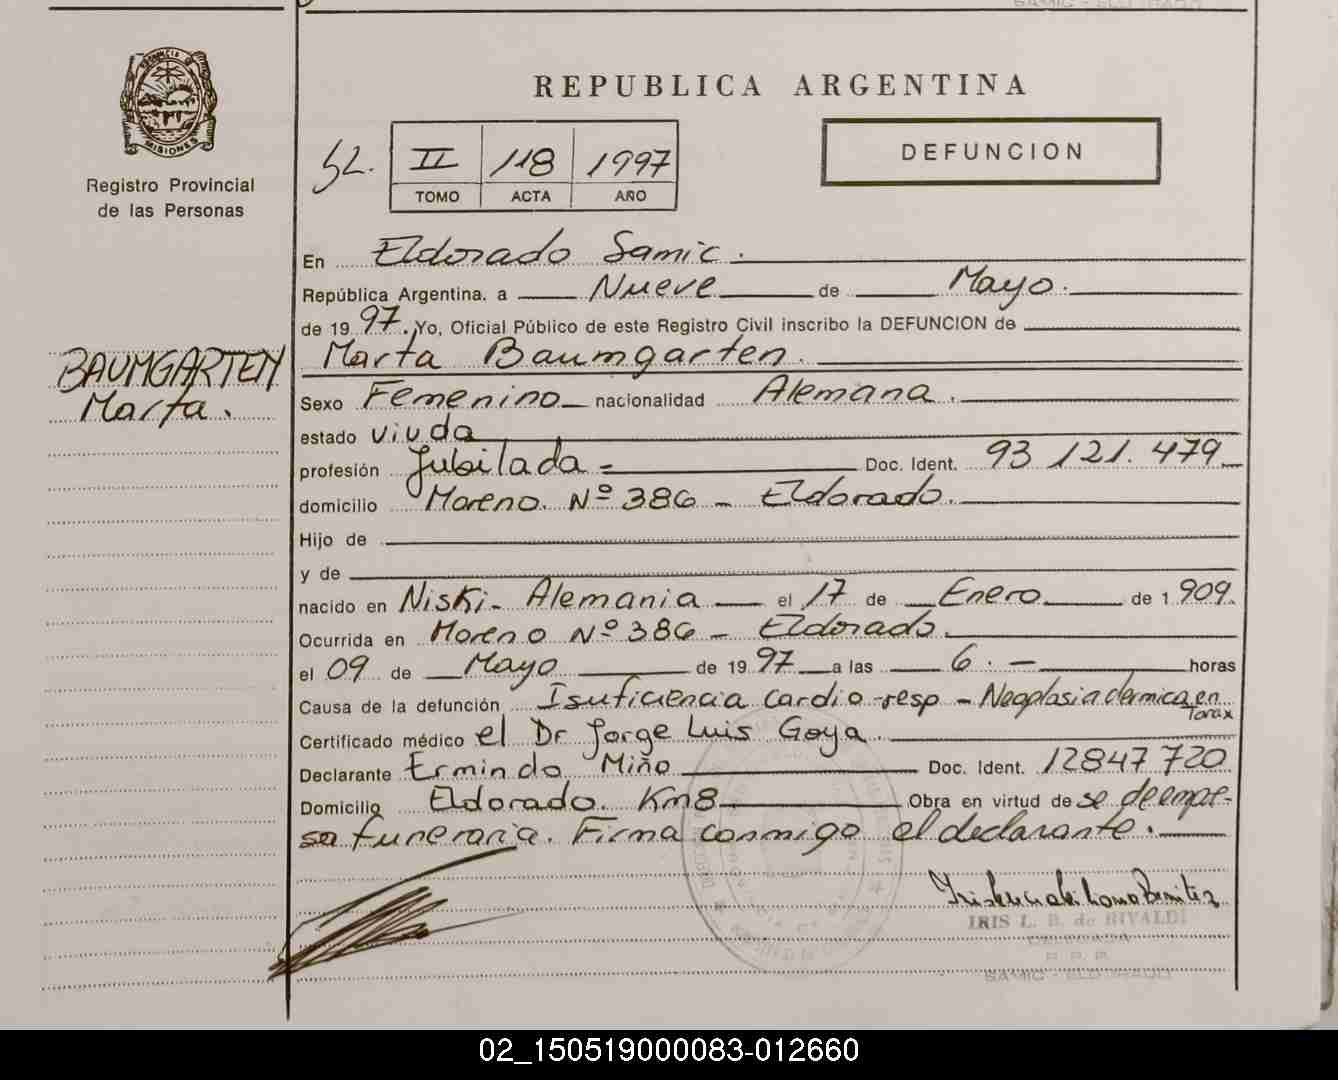 REPUBLICA ARGENTINA
PROVINCIA DE
MISIONES
Registro Provincial
de las Personas
52. II 118 1997
TOMO ACTA AÑO
DEFUNCION
BAUMGARTEN
Marta.
En Eldorado Samic.
República Argentina, a Nueve de Mayo.
de 1997. Yo, Oficial Público de este Registro Civil inscribo la DEFUNCION de
Marta Baumgarten.
Sexo Femenino nacionalidad Alemana.
estado viuda
profesión Jubilada = Doc. Ident. 93 121.479
domicilio Moreno. Nº 386 - Eldorado.
Hijo de
y de
nacido en Niski- Alemania el 17 de Enero de 1909.
Ocurrida en Moreno Nº 386 - Eldorado.
el 09 de Mayo de 1997 a las 6. - horas
Causa de la defunción Isuficiencia cardio-resp - Neoplasia dermica en
Torax
Certificado médico el Dr Jorge Luis Goya.
Declarante Ermindo Miño Doc. Ident. 12847720
Domicilio Eldorado. Km8 Obra en virtud de se de empre-
sa funeraria. Firma conmigo el declarante.
IRIS L. B. de RIVALDI
DELEGADA
R. P. P.
SAMIC - ELDORADO
02_150519000083-012660